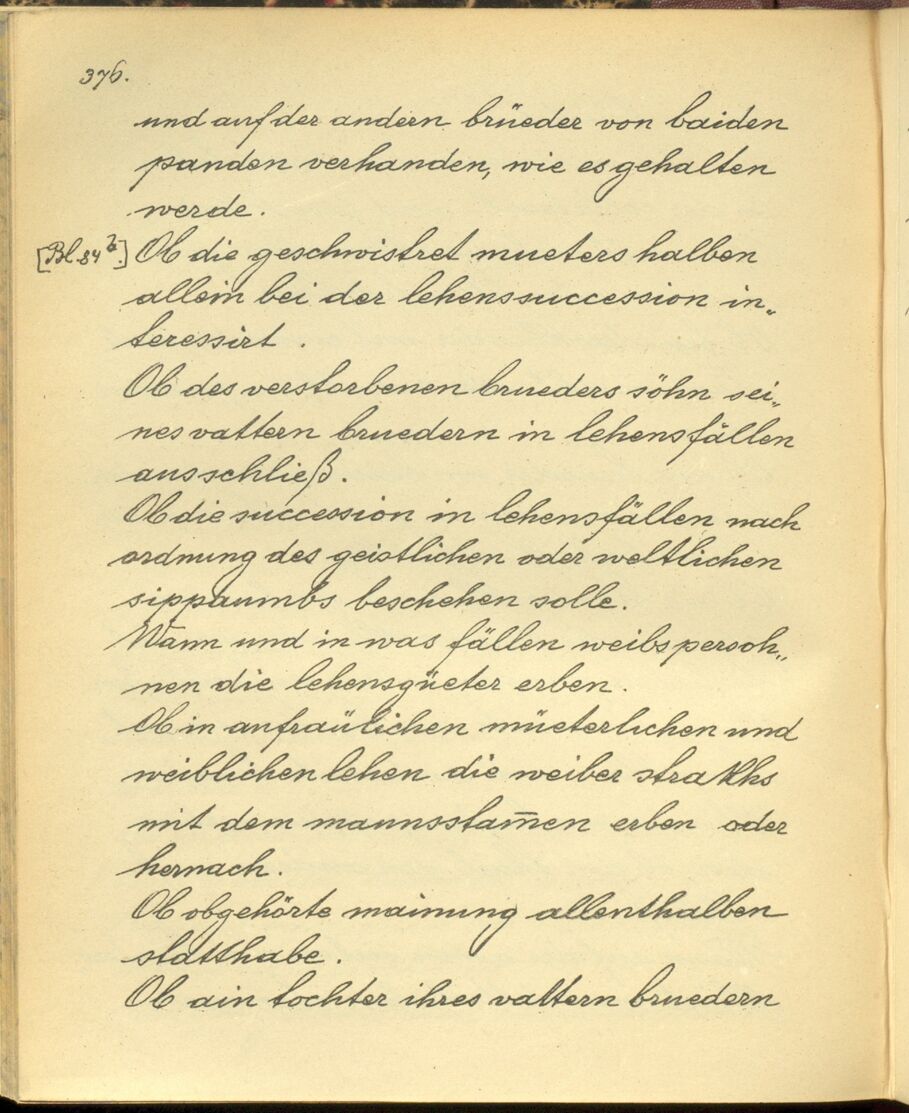 376.
und auf der andern brüeder von baiden
panden verhanden, wie es gehalten
werde.
[Bl. 84 b.] Ob die geschwistret mueters halben
allein bei der lehenssuccession in„
teressirt.
Ob des verstorbenen brueders söhn sei„
nes vattern bruedern in lehensfällen
ausschließ.
Ob die succession in lehensfällen nach
ordnung des geistlichen oder weltlichen
sippaumbs beschehen solle.
Wann und in was fällen weibspersoh„
nen die lehensgüeter erben.
Ob in anfraülichen müeterlichen und
weiblichen lehen die weiber strakhs
mit dem mannsstam̅en erben oder
hernach.
Ob obgehörte mainung allenthalben
statthabe.
Ob ain tochter ihres vattern bruedern